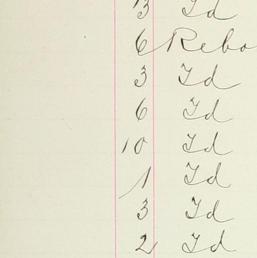 3 Id
6 Rebo
3 Id
6 Id
10 Id
1 Id
3 Id
2 Id